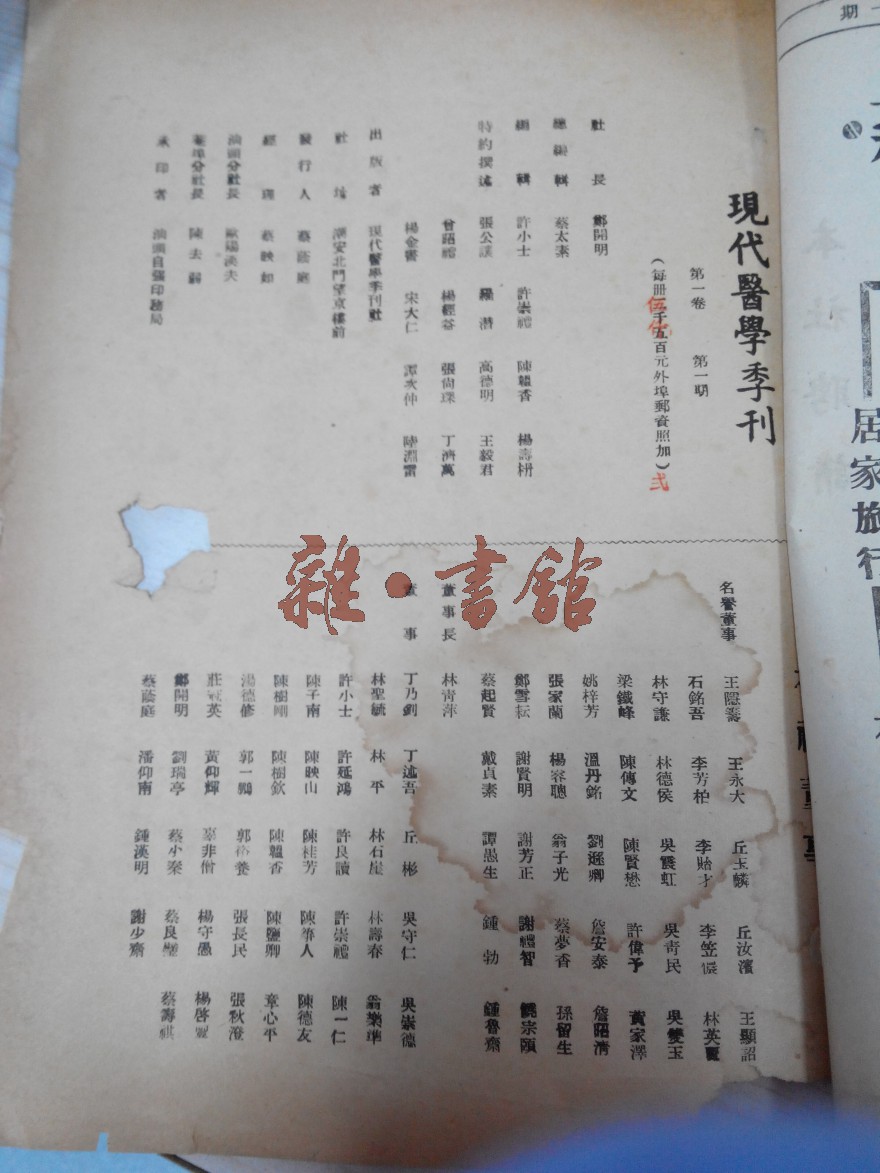 現代醫學季刊
第一卷 第一期
（每冊一千五百元外埠郵資照加）
伍 弍
社長 鄭開明
總編輯 蔡太素
編輯 許小士 許崇禮 陳韞香 楊壽枬
特約撰述 張公讓 羅潛 高德明 王毅君
曾昭禮 楊經谷 張尚璞 丁濟萬
楊金響 宋大仁 譚次仲 陸淵雷
出版者 現代醫學季刊社
社址 潮安北門望京樓前
發行人 蔡蔭庭
經理 蔡映如
汕頭分社長 歐陽淡夫
菴埠分社長 陳去弱
承印者 汕頭自強印務局
名譽董事 王隱蓀 王永大 丘玉麟 丘汝濱 王顯詔
石銘吾 李芳柏 李貽才 李笠儂 林英
林守謙 林德侯 吳震虹 吳青民 吳雙玉
梁鐵峰 陳傳文 陳賢懋 許偉予 黃家澤
姚梓芳 溫丹銘 劉遜卿 詹安泰 詹昭清
張家蘭 楊睿聰 翁子光 蔡夢香 孫留生
鄭雪耘 謝賢明 謝芳正 謝禮智 饒宗頤
蔡起賢 戴貞素 譚愚生 鍾勃 鍾魯齋
董事長 林青萍
董事 丁乃釗 丁遜吾 丘彬 吳守仁 吳崇德
林聖毓 林平 林石崖 林壽春 翁樂準
許小士 許延鴻 許良讀 許崇禮 陳一仁
陳子南 陳映山 陳桂芳 陳筆人 陳德友
陳樹剛 陳樹欽 陳韞香 陳鹽卿 章心平
湯德修 郭一鶚 郭裕養 張長民 張秋澄
莊冠英 黃仰輝 辜非僧 楊守愚 楊啓
鄭開明 劉瑞亭 蔡小槃 蔡良璧 蔡壽祺
蔡蔭庭 潘仰南 鍾漢明 謝少齋
雜·書館
期
居家旅行
本社聘請
董事